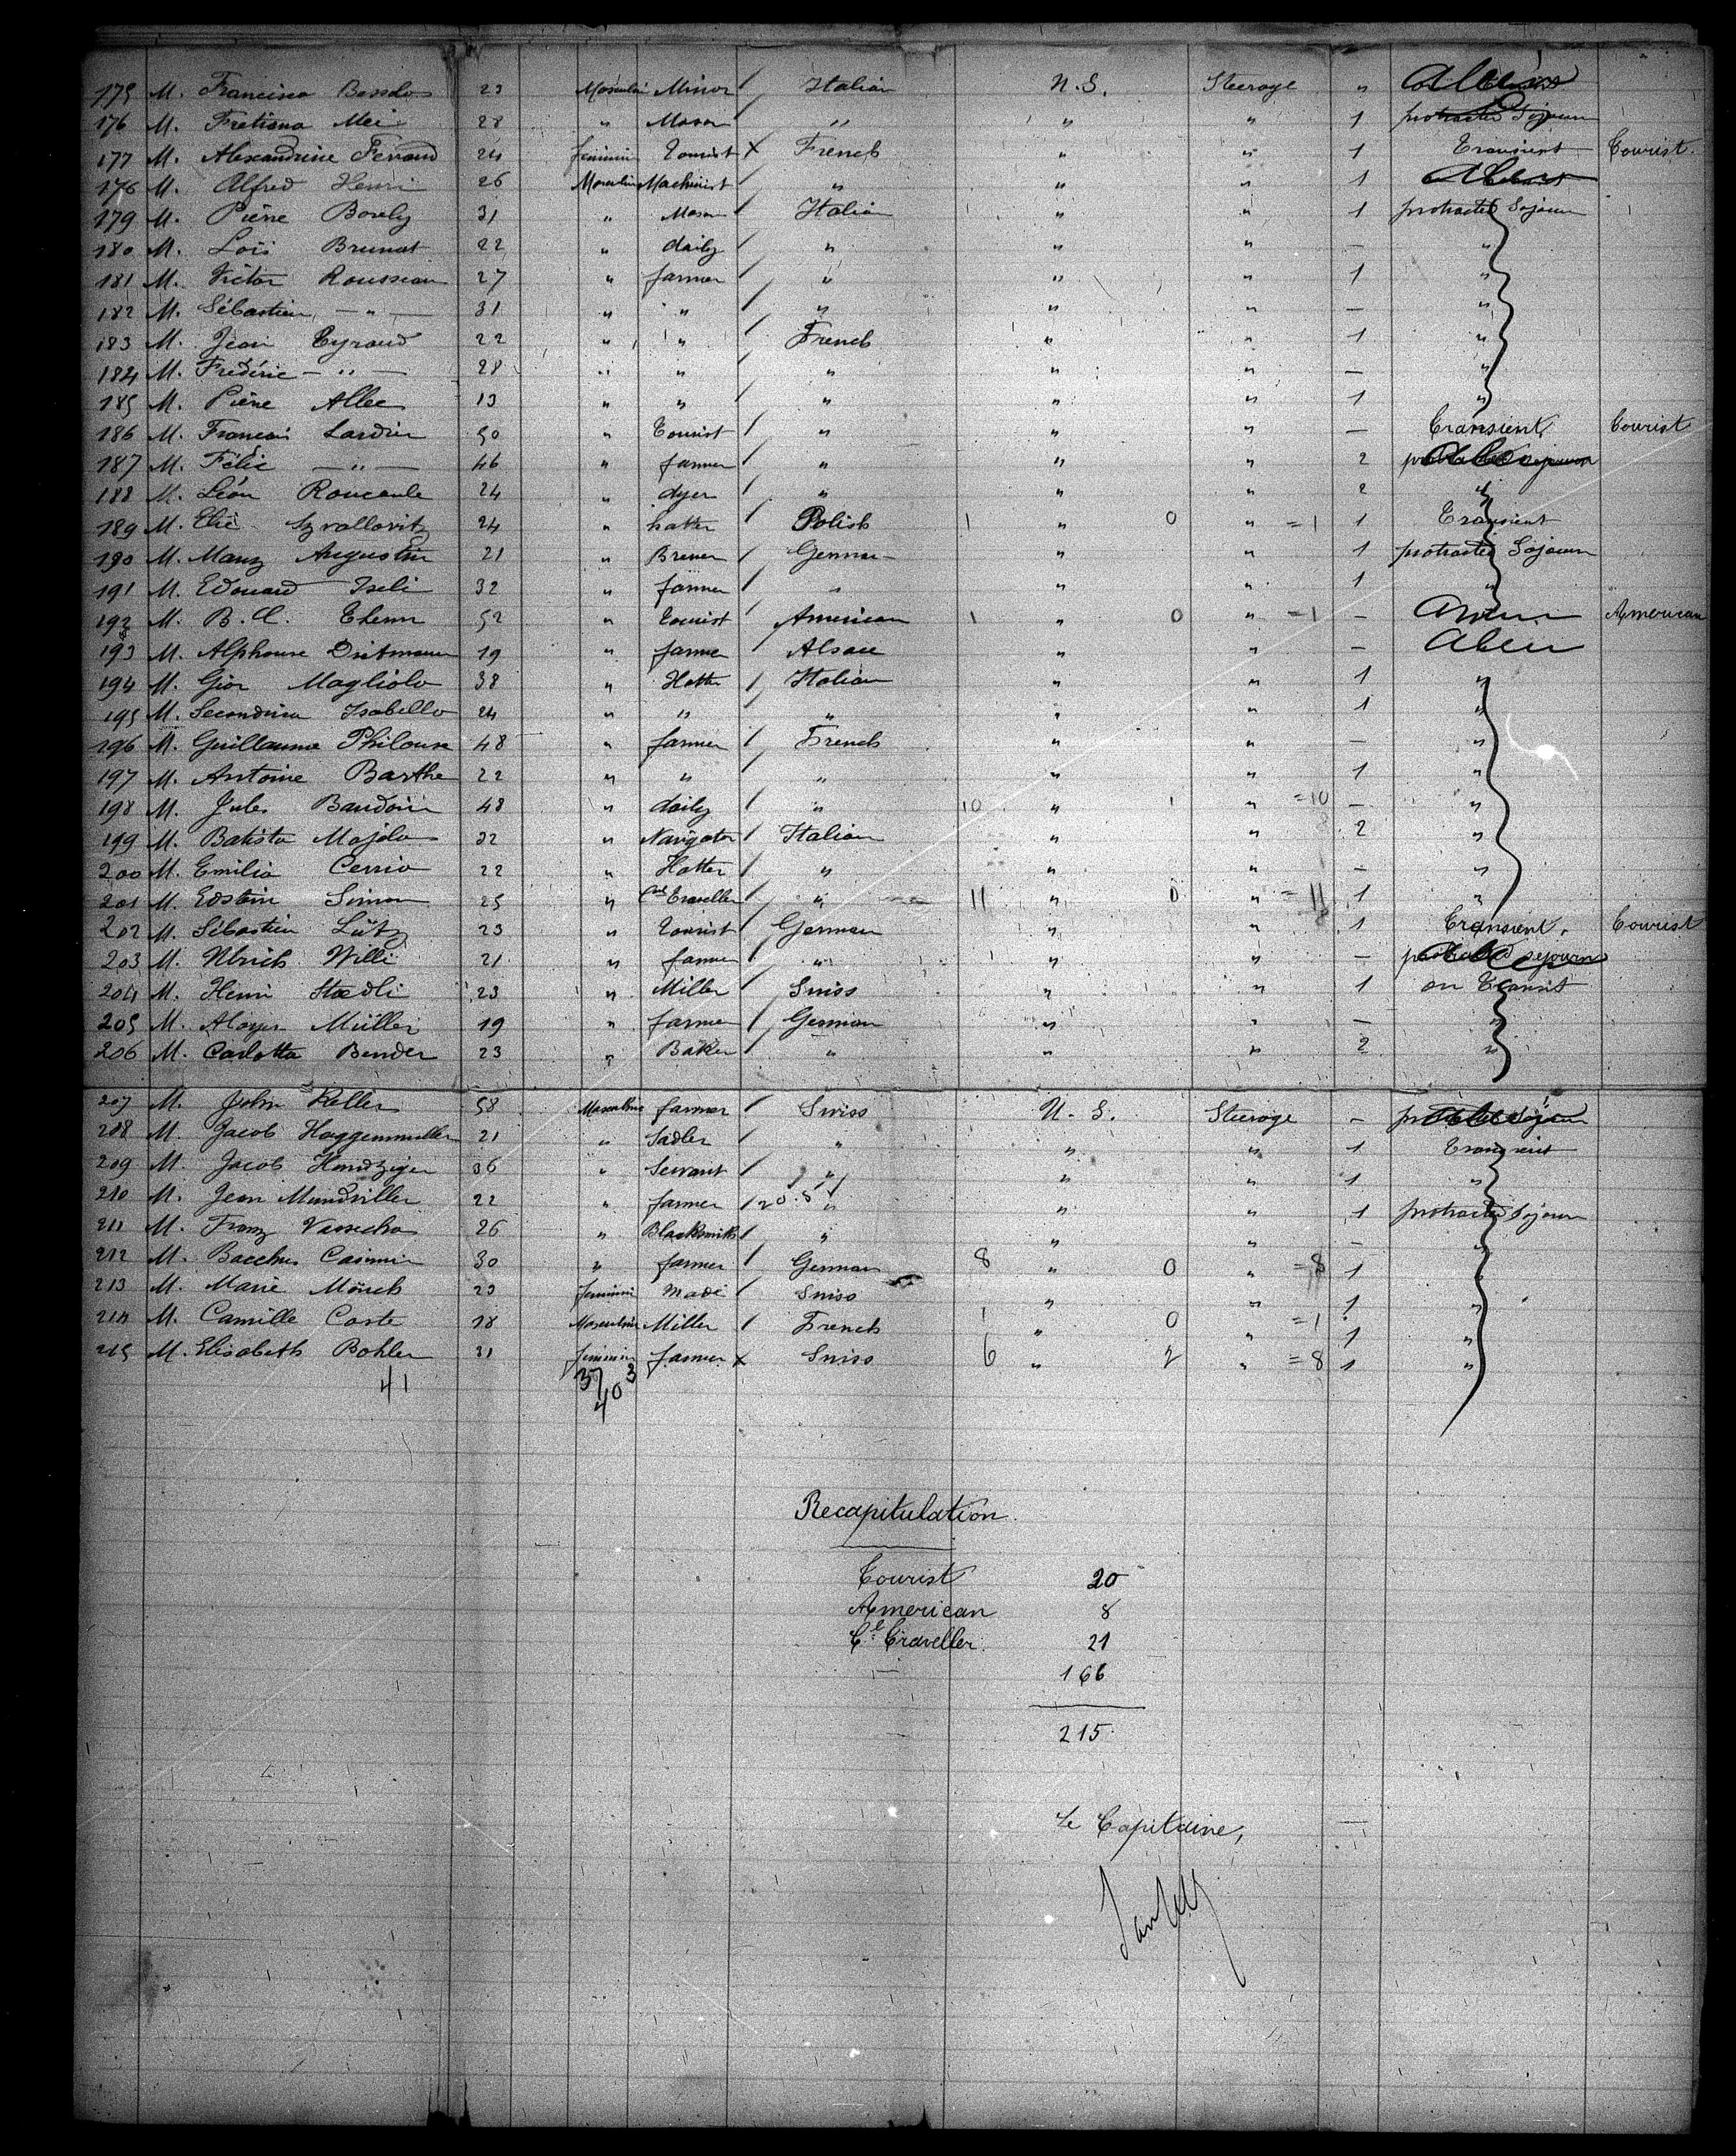 175 M. Francisco Bessolo 23 Masculin Minor / Italian U.S. Steerage " Alien
176 M. Fretiana Mei 28 " Mason / " " " 1 protracted Sojourn
177 M. Alexandrine Feraud 24 feminin Tourist X French " " 1 Transient Tourist
178 M. Alfred Henri 26 Masculin Machinist / " " " 1 Alien
179 M. Piérre Borely 31 " Mason / Italian " " 1 protracted Sojourn
180 M. Loïs Brunat 22 " daily / " " " — "
181 M. Victor Rousseau 27 " farmer / " " " 1 "
182 M. Sébastien — " — 31 " " / " " " — "
183 M. Jean Eyraud 22 " " / French " " 1 "
184 M. Fréderic — " — 28 " " / " " " — "
185 M. Piérre Allec 13 " " / " " " 1 "
186 M. Francois Lardier 50 " Tourist / " " " — Transient Tourist
187 M. Félic — " — 46 " farmer / " " " 2 Alien
188 M. Léon Roucaule 24 " dyer / " " " 2 "
189 M. Elie Szvallovitz 24 " hatter / Polish 1 " 0 " = 1 1 Transient
190 M. Manz Augustin 21 " Brewer / German " " 1 protracted Sojourn
191 M. Edouard Iseli 32 " farmer / " " " 1 "
192 M. B. A. 52 " Tourist / American 1 " 0 " = 1 — American
193 M. Alphonse Dietmann 19 " farmer / Alsace " " — Alien
194 M. Gior Magliolo 38 " Hatter / Italian " " 1 "
195 M. Secondina Isabello 24 " " / " " " 1 "
196 M. Guillaume Philouse 48 " farmer / French " " — "
197 M. Antoine Barthe 22 " " / " " " 1 "
198 M. Jules Baudoin 48 " daily / " 10 " " = 10 — "
199 M. Batista Majolo 32 " Navigator / Italian " " 2 "
200 M. Emilio Cerrio 22 " Hatter / " " " — "
201 M. Edstein Simon 25 " Cel Traveller / " 11 " 0 " = 11 1 "
202 M. Sébastien Lütz 23 " Tourist / German " " 1 Transient. Tourist
203 M. Ulrich Willi 21 " farmer / " " " — protracted sejourn
204 M. Henri Stœdli 23 " Miller / Swiss " " 1 on Transit
205 M. Aloyes Müller 19 " farmer / German " " — "
206 M. Carlotta Bender 23 " Baker / " " " 2 "
207 M. John Keller 58 Masculine farmer / Swiss U. S. Steerage — protracted Sojourn
208 M. Jacob Haggenmuller 21 " Sadler / " " " 1 Transient
209 M. Jacob Handziger 36 " Servant / " " " 1 "
210 M. Jean Mundviller 22 " farmer / " " " 1 protracted Sojourn
211 M. Franz Vassecha 26 " Blacksmith / " " " — "
212 M. Bacchus Casimir 30 " farmer / German 8 " 0 " = 8 1 "
213 M. Marie Mönch 23 feminin Swiss " " 1 "
214 M. Camille Coste 18 Masculin Miller / French 1 " 0 " = 1 1 "
215 M. Elisabeth Bohler 31 feminin farmer X Swiss 6 " 2 " = 8 1 "
41 37 3
40
Recapitulation
Tourist 20
American 8
Cel Traveller 21
— 166
215
Le Capitaine,